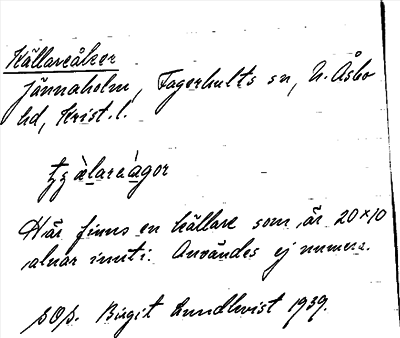 Källareåker
Jännaholm, Fagerhults sn, N. Åsbo
hd, Krist. l.
Här finns en källare som är 20×10
alnar inuti. Användes ej numera.
sOs. Birgit Lundkvist 1939.